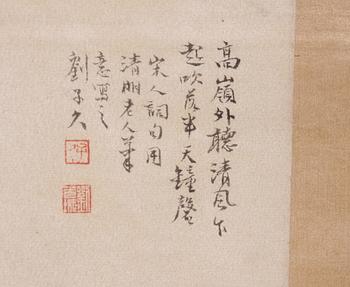 高嶺外聽清風乍
起吹落半天鐘磬
宋人詞句用
清湘老人筆
意寫之
劉子久